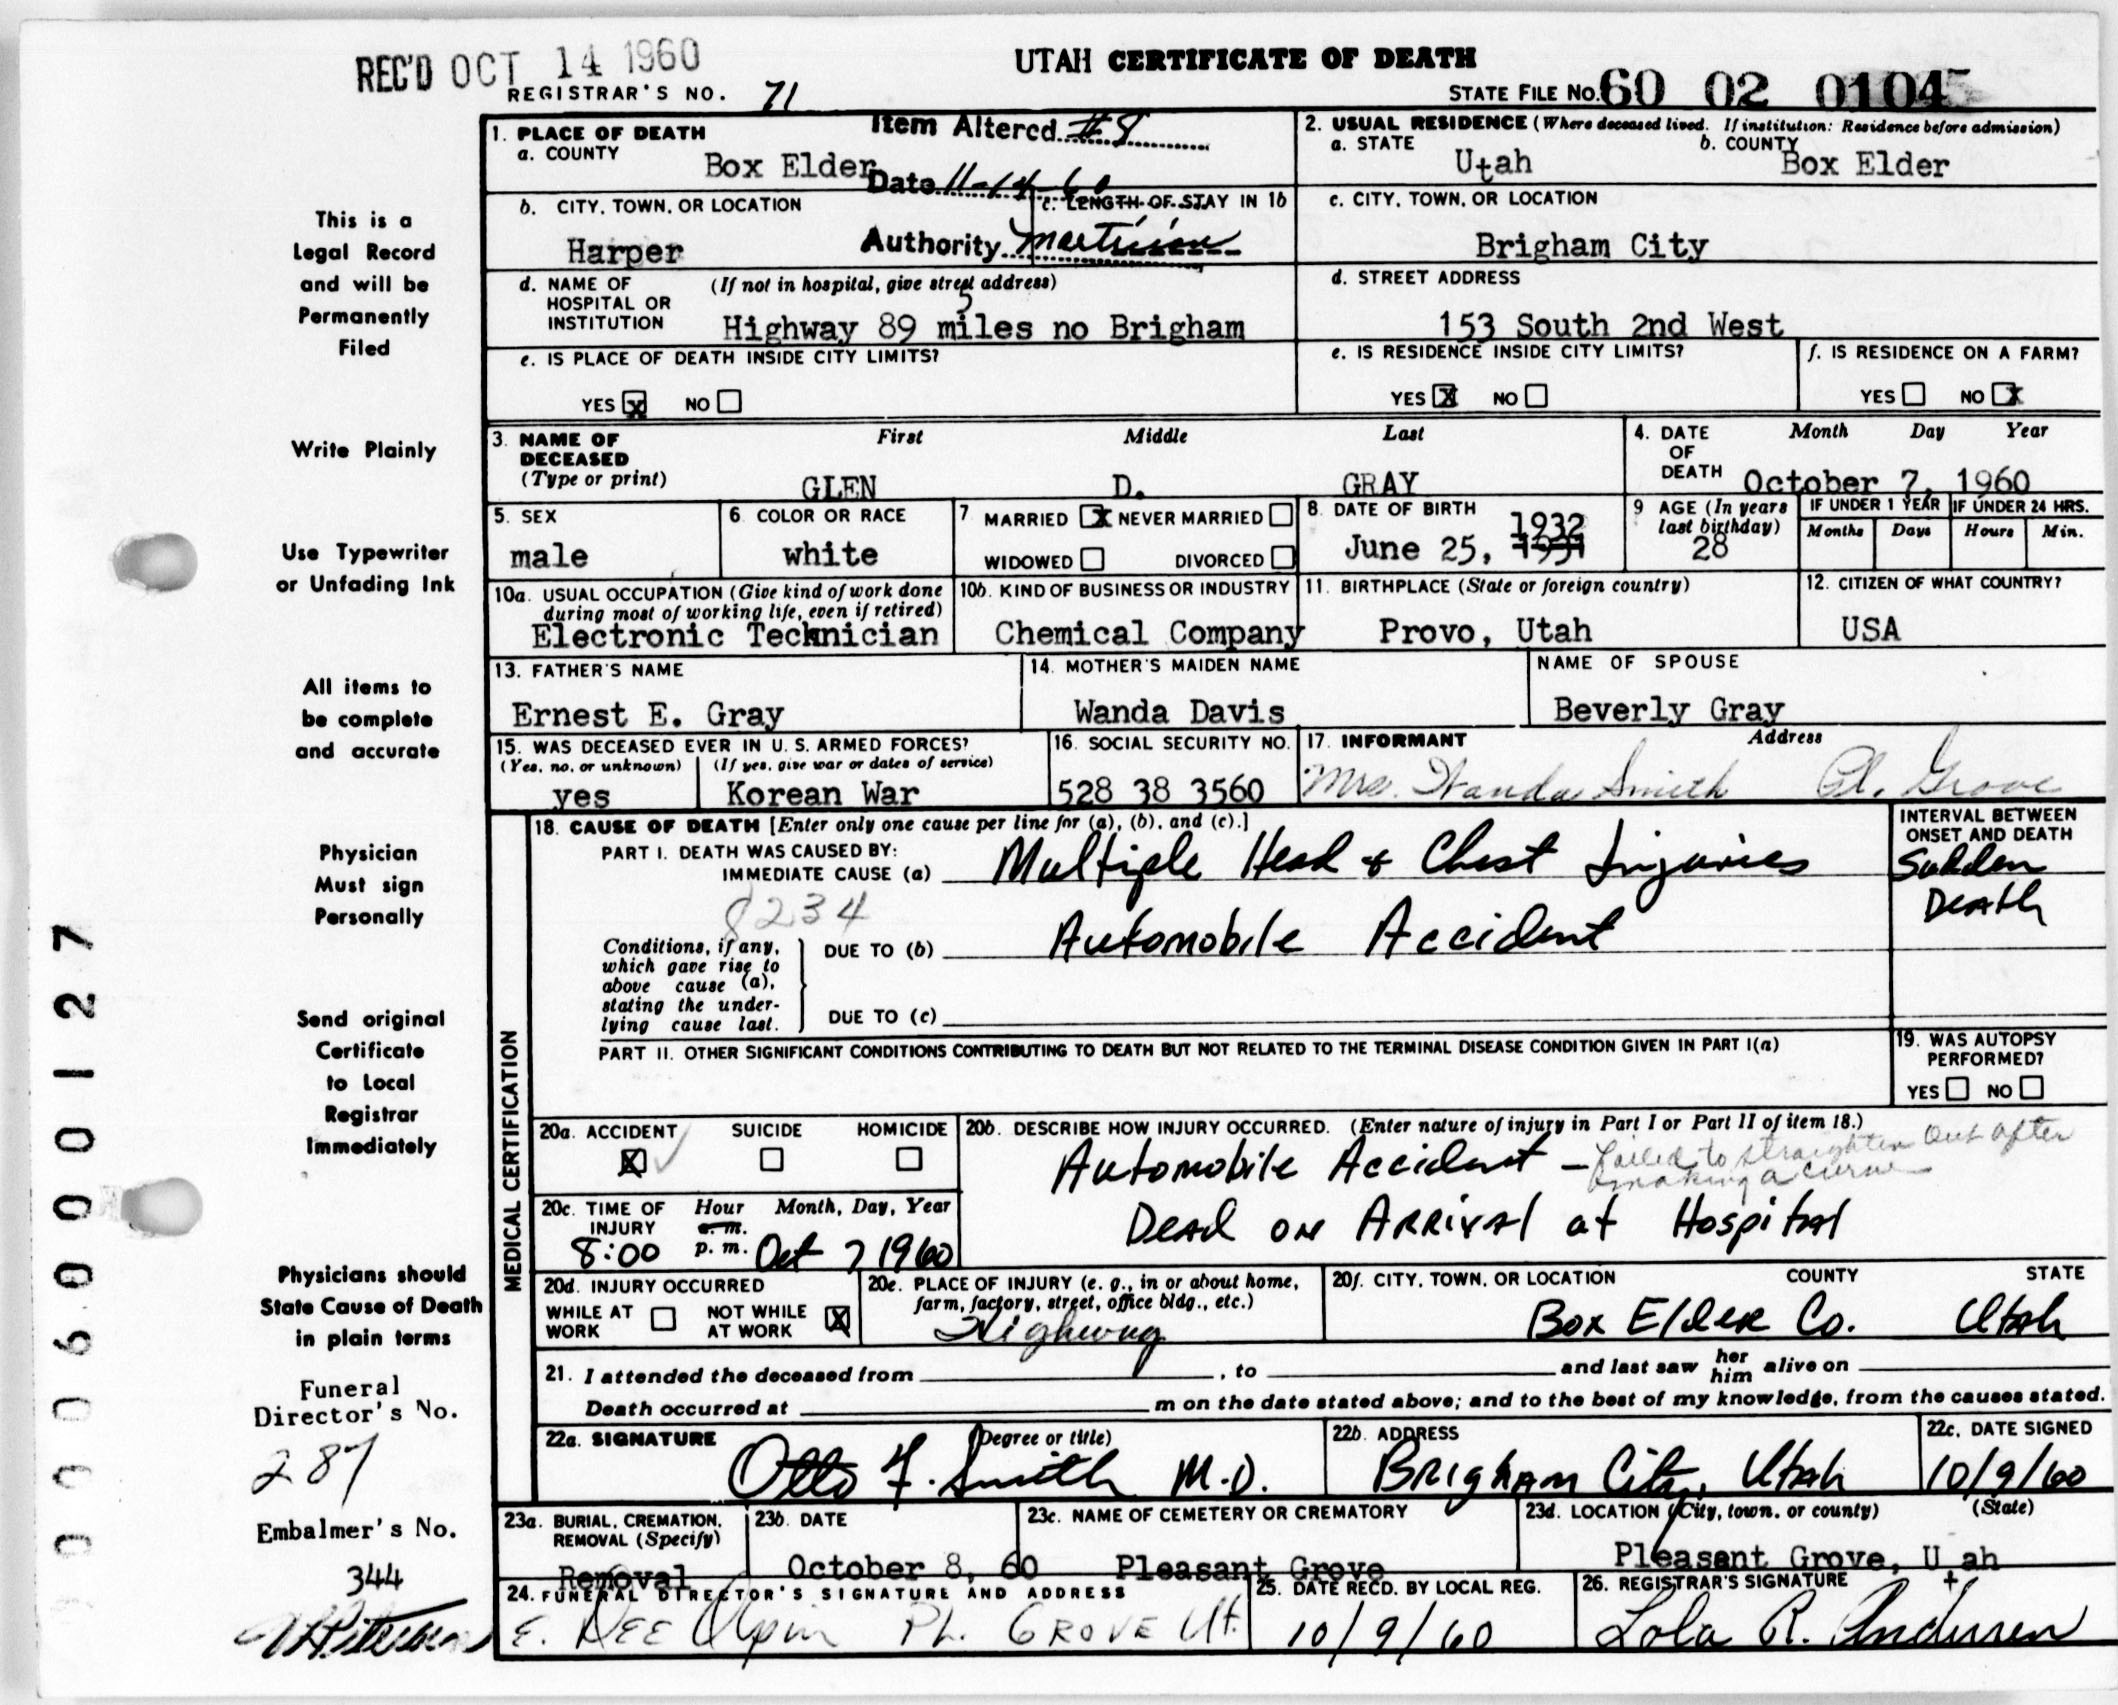 REC'D OCT 14 1960
UTAH CERTIFICATE OF DEATH
REGISTRAR'S NO. 71
STATE FILE NO. 60 02 0104
Item Altered #8
Date 11-14-60
Authority
1. PLACE OF DEATH
a. COUNTY
Box Elder
2. USUAL RESIDENCE (Where deceased lived. If institution: Residence before admission)
a. STATE
Utah
b. COUNTY
Box Elder
b. CITY, TOWN, OR LOCATION
Harper
c. LENGTH OF STAY IN 1b
c. CITY, TOWN, OR LOCATION
Brigham City
d. NAME OF HOSPITAL OR INSTITUTION
(If not in hospital, give street address)
5
Highway 89 miles no Brigham
d. STREET ADDRESS
153 South 2nd West
e. IS PLACE OF DEATH INSIDE CITY LIMITS?
YES X NO
e. IS RESIDENCE INSIDE CITY LIMITS?
YES X NO
f. IS RESIDENCE ON A FARM?
YES NO X
3. NAME OF DECEASED
(Type or print)
First Middle Last
GLEN D. GRAY
4. DATE OF DEATH
Month Day Year
October 7, 1960
5. SEX
male
6. COLOR OR RACE
white
7 MARRIED X NEVER MARRIED
WIDOWED DIVORCED
8. DATE OF BIRTH
1932
June 25, 1931
9 AGE (In years last birthday)
28
IF UNDER 1 YEAR
Months Days
IF UNDER 24 HRS.
Hours Min.
10a. USUAL OCCUPATION (Give kind of work done during most of working life, even if retired)
Electronic Technician
10b. KIND OF BUSINESS OR INDUSTRY
Chemical Company
11. BIRTHPLACE (State or foreign country)
Provo, Utah
12. CITIZEN OF WHAT COUNTRY?
USA
13. FATHER'S NAME
Ernest E. Gray
14. MOTHER'S MAIDEN NAME
Wanda Davis
NAME OF SPOUSE
Beverly Gray
15. WAS DECEASED EVER IN U. S. ARMED FORCES?
(Yes, no, or unknown) (If yes, give war or dates of service)
yes Korean War
16. SOCIAL SECURITY NO.
528 38 3560
17. INFORMANT Address
Mrs. Wanda Smith Pl. Grove
MEDICAL CERTIFICATION
18. CAUSE OF DEATH [Enter only one cause per line for (a), (b), and (c).]
PART I. DEATH WAS CAUSED BY:
IMMEDIATE CAUSE (a) Multiple Head & Chest Injuries
8234
Conditions, if any, which gave rise to above cause (a), stating the underlying cause last.
DUE TO (b) Automobile Accident
DUE TO (c)
INTERVAL BETWEEN ONSET AND DEATH
Sudden Death
PART II. OTHER SIGNIFICANT CONDITIONS CONTRIBUTING TO DEATH BUT NOT RELATED TO THE TERMINAL DISEASE CONDITION GIVEN IN PART I(a)
19. WAS AUTOPSY PERFORMED?
YES NO
20a. ACCIDENT SUICIDE HOMICIDE
X
20b. DESCRIBE HOW INJURY OCCURRED. (Enter nature of injury in Part I or Part II of item 18.)
Automobile Accident - failed to straighten out after making a curve
Dead on Arrival at Hospital
20c. TIME OF INJURY
Hour Month, Day, Year
a. m.
8:00 p. m. Oct 7 1960
20d. INJURY OCCURRED
WHILE AT WORK NOT WHILE AT WORK X
20e. PLACE OF INJURY (e. g., in or about home, farm, factory, street, office bldg., etc.)
Highway
20f. CITY, TOWN, OR LOCATION COUNTY STATE
Box Elder Co. Utah
21. I attended the deceased from , to and last saw her him alive on
Death occurred at m on the date stated above; and to the best of my knowledge, from the causes stated.
22a. SIGNATURE (Degree or title)
Otto F. Smith M.D.
22b. ADDRESS
Brigham City, Utah
22c. DATE SIGNED
10/9/60
23a. BURIAL, CREMATION, REMOVAL (Specify)
Removal
23b. DATE
October 8, 60
23c. NAME OF CEMETERY OR CREMATORY
Pleasant Grove
23d. LOCATION (City, town, or county) (State)
Pleasant Grove, Utah
24. FUNERAL DIRECTOR'S SIGNATURE AND ADDRESS
E. Dee Olpin Pl. Grove Ut.
25. DATE RECD. BY LOCAL REG.
10/9/60
26. REGISTRAR'S SIGNATURE
Lola R. Andersen
This is a
Legal Record
and will be
Permanently
Filed
Write Plainly
Use Typewriter
or Unfading Ink
All items to
be complete
and accurate
Physician
Must sign
Personally
Send original
Certificate
to Local
Registrar
Immediately
Physicians should
State Cause of Death
in plain terms
Funeral
Director's No.
287
Embalmer's No.
344